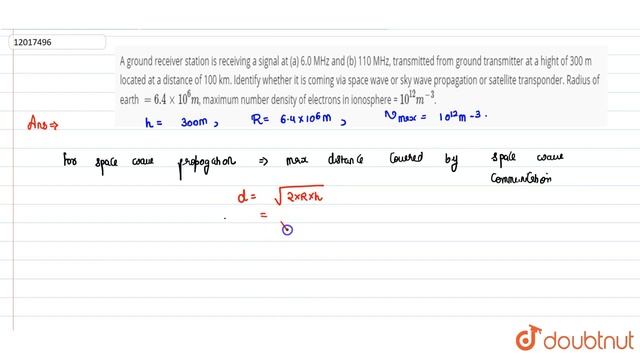 12017496
A ground receiver station is receiving a signal at (a) 6.0 MHz and (b) 110 MHz, transmitted from ground transmitter at a hight of 300 m
located at a distance of 100 km. Identify whether it is coming via space wave or sky wave propagation or satellite transponder. Radius of
earth = 6.4 × 10⁶m, maximum number density of electrons in ionosphere = 10¹²m⁻³.
Ans⇒ h = 300m, R = 6.4×10⁶m, Nmax = 10¹²m-3.
for space wave propogation ⇒ max distance covered by space wave
d = √2×R×h
=
doubtnut